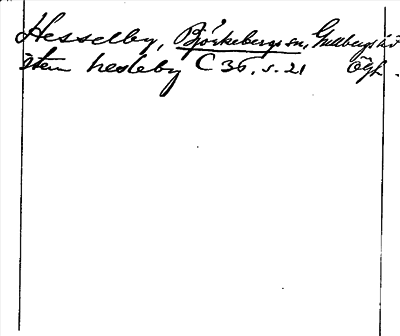 Hesselby, Björkebergs sn, Gullbergs hd
item hesleby C 36, s. 21 Ögl.